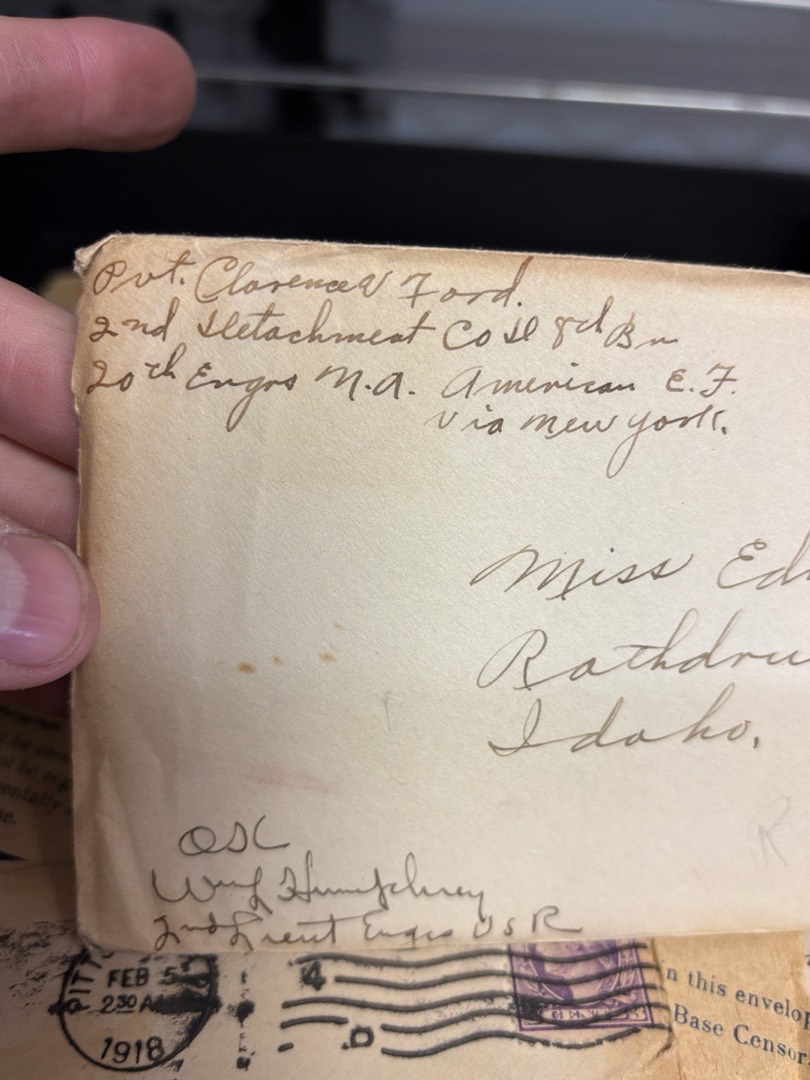 Pvt. Clarence V Ford.
2nd Detachment Co D 8th Bn
20th Engrs N.A. American E.F.
Via New York.
Miss Ed
Rathdru
Idaho.
OK
Wm L Humphrey
2nd Lieut Engrs USR
PITT
FEB 5
2 30 A
1918
4
D
CENTS
n this envelop
Base Censor